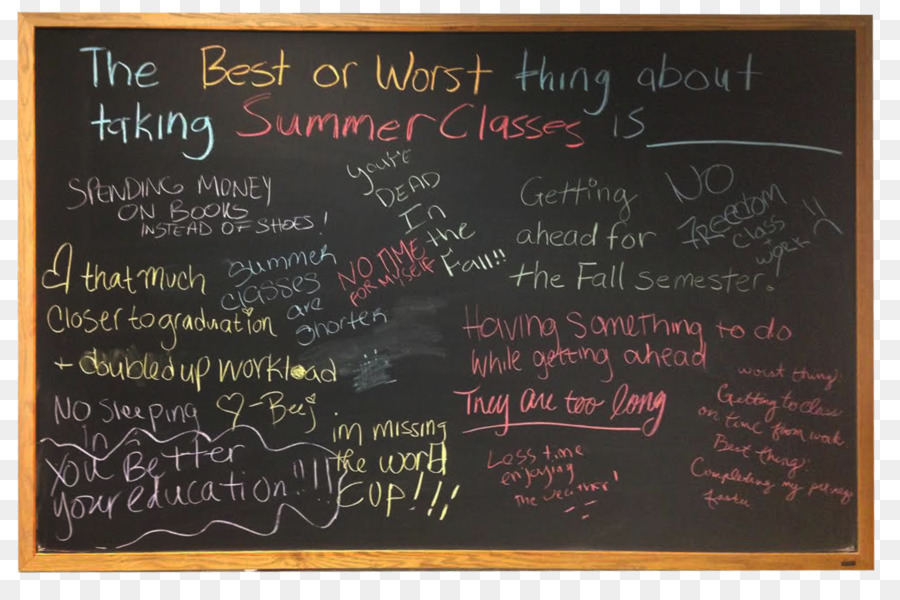 The Best or Worst thing about
taking Summer Classes is
SPENDING MONEY
ON BOOKS
INSTEAD OF SHOES!
You're
DEAD
In
the
Fall!!
Getting
ahead for
the Fall semester!
NO
FREEDOM
Class
work
!!
that much
Closer to graduation
+ doubled up workload
♡-Beej
summer
classes
are
shorter
NO TIME
FOR MYSELF
Having something to do
while getting ahead
They are too long
worst thing:
Getting to class
on time from work
Best thing:
Completing my
faster
NO Sleeping
in
You Better
your education!!!!
im missing
the world
CUP!!!
Less time
enjoying
the weather!